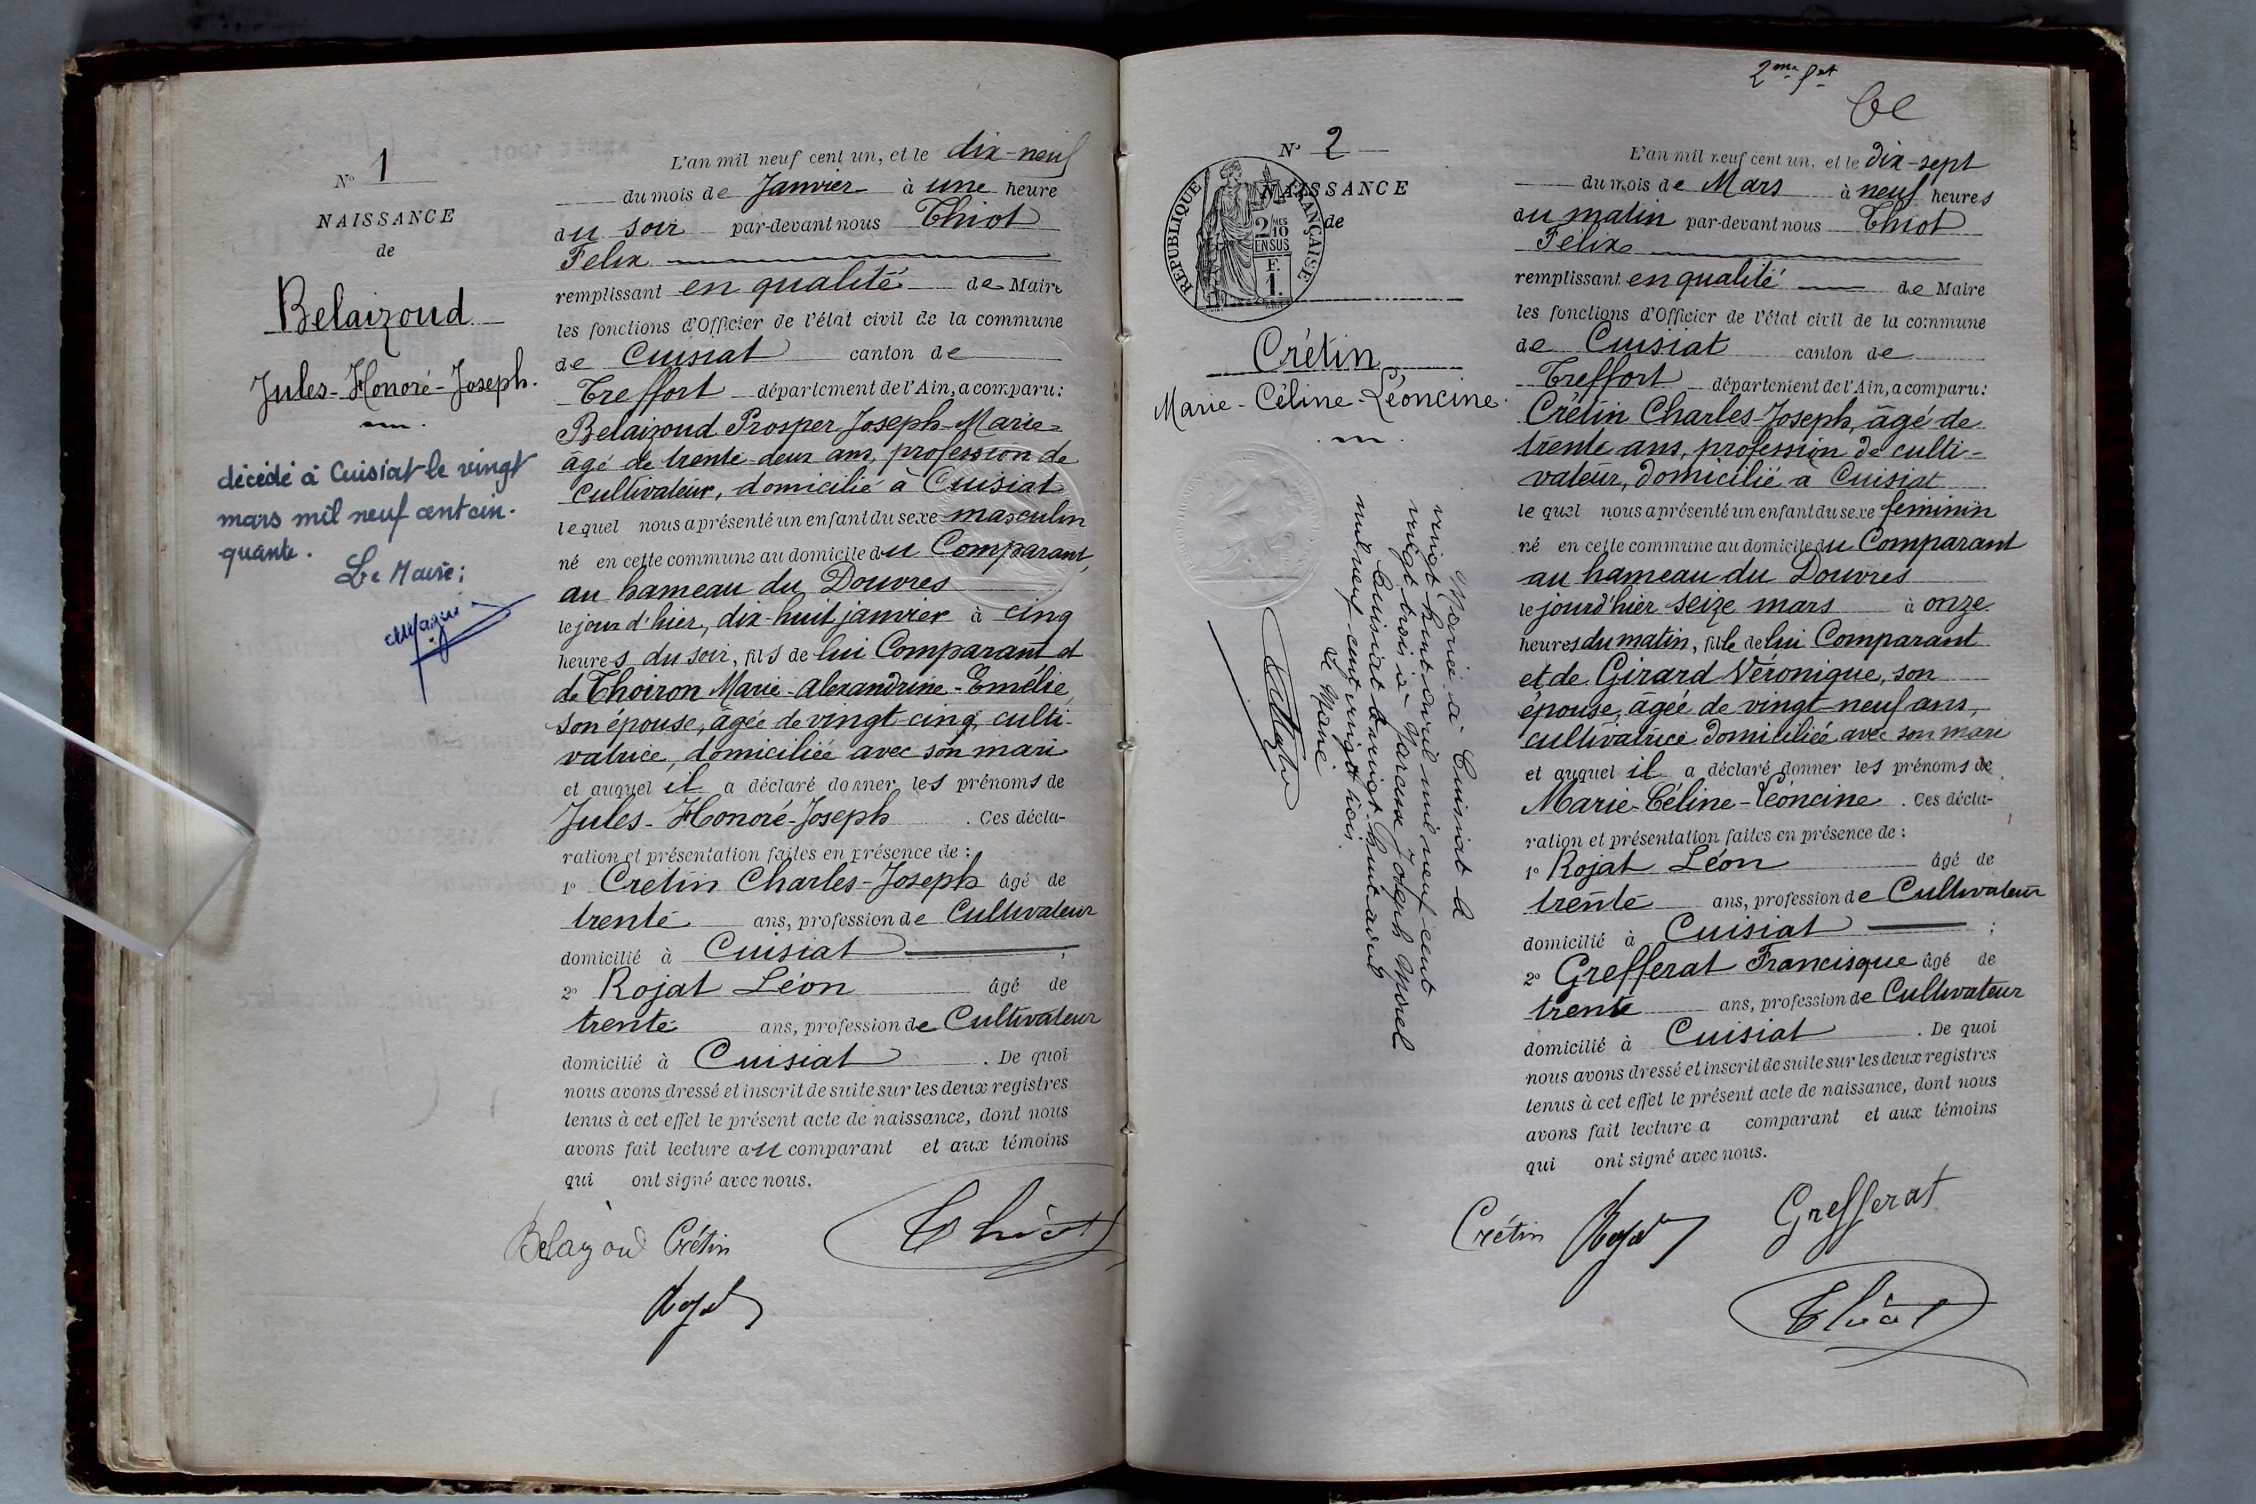 N° 1
NAISSANCE
de
Belaizoud
Jules-Honoré-Joseph.
décédé à Cuisiat le vingt
mars mil neuf cent cin-
quante.
Le Maire:
L'an mil neuf cent un, et le dix-neuf
du mois de Janvier à une heure
du soir par-devant nous Thiot
Felix
remplissant en qualité de Maire
les fonctions d'Officier de l'état civil de la commune
de Cuisiat canton de
Treffort département de l'Ain, a comparu:
Belaizoud Prosper Joseph-Marie
âgé de trente-deux ans, profession de
Cultivateur, domicilié à Cuisiat
lequel nous a présenté un enfant du sexe masculin
né en cette commune au domicile du Comparant,
au hameau du Douvres
le jour d'hier, dix-huit janvier à cinq
heures du soir, fils de lui Comparant et
de Thoiron Marie-Alexandrine-Emélie,
son épouse, âgée de vingt-cinq, culti-
vatrice, domiciliée avec son mari
et auquel il a déclaré donner les prénoms de
Jules-Honoré-Joseph. Ces décla-
ration et présentation faites en présence de:
1° Cretin Charles-Joseph âgé de
trente ans, profession de Cultivateur
domicilié à Cuisiat ;
2° Rojat Léon âgé de
trente ans, profession de Cultivateur
domicilié à Cuisiat. De quoi
nous avons dressé et inscrit de suite sur les deux registres
tenus à cet effet le présent acte de naissance, dont nous
avons fait lecture au comparant et aux témoins
qui ont signé avec nous.
Belaizoud Crétin Thiot
Rojat
2me
N° 2
NAISSANCE
de
RÉPUBLIQUE FRANÇAISE
2/10
EN SUS
F.
1.
Crétin
Marie-Céline-Léoncine.
Mariée à Cuisiat le
vingt huit avril mil neuf cent
vingt trois à Joseph Morel
Cuisiat le vingt-huit avril
mil neuf cent vingt trois.
Le Maire
L'an mil neuf cent un, et le dix-sept
du mois de Mars à neuf heures
du matin par-devant nous Thiot
Félix
remplissant en qualité de Maire
les fonctions d'Officier de l'état civil de la commune
de Cuisiat canton de
Treffort département de l'Ain, a comparu:
Crétin Charles-Joseph, âgé de
trente ans, profession de culti-
vateur, domicilié à Cuisiat
lequel nous a présenté un enfant du sexe féminin
né en cette commune au domicile du Comparant
au hameau du Douvres
le jour d'hier seize mars à onze
heures du matin, fille de lui Comparant
et de Girard Véronique, son
épouse, âgée de vingt-neuf ans,
cultivatrice domiciliée avec son mari
et auquel il a déclaré donner les prénoms de
Marie-Céline-Léoncine. Ces décla-
ration et présentation faites en présence de:
1° Rojat Léon âgé de
trente ans, profession de Cultivateur
domicilié à Cuisiat ;
2° Grefferat Francisque âgé de
trente ans, profession de Cultivateur
domicilié à Cuisiat. De quoi
nous avons dressé et inscrit de suite sur les deux registres
tenus à cet effet le présent acte de naissance, dont nous
avons fait lecture a comparant et aux témoins
qui ont signé avec nous.
Crétin Rojat Grefferat
Thiot